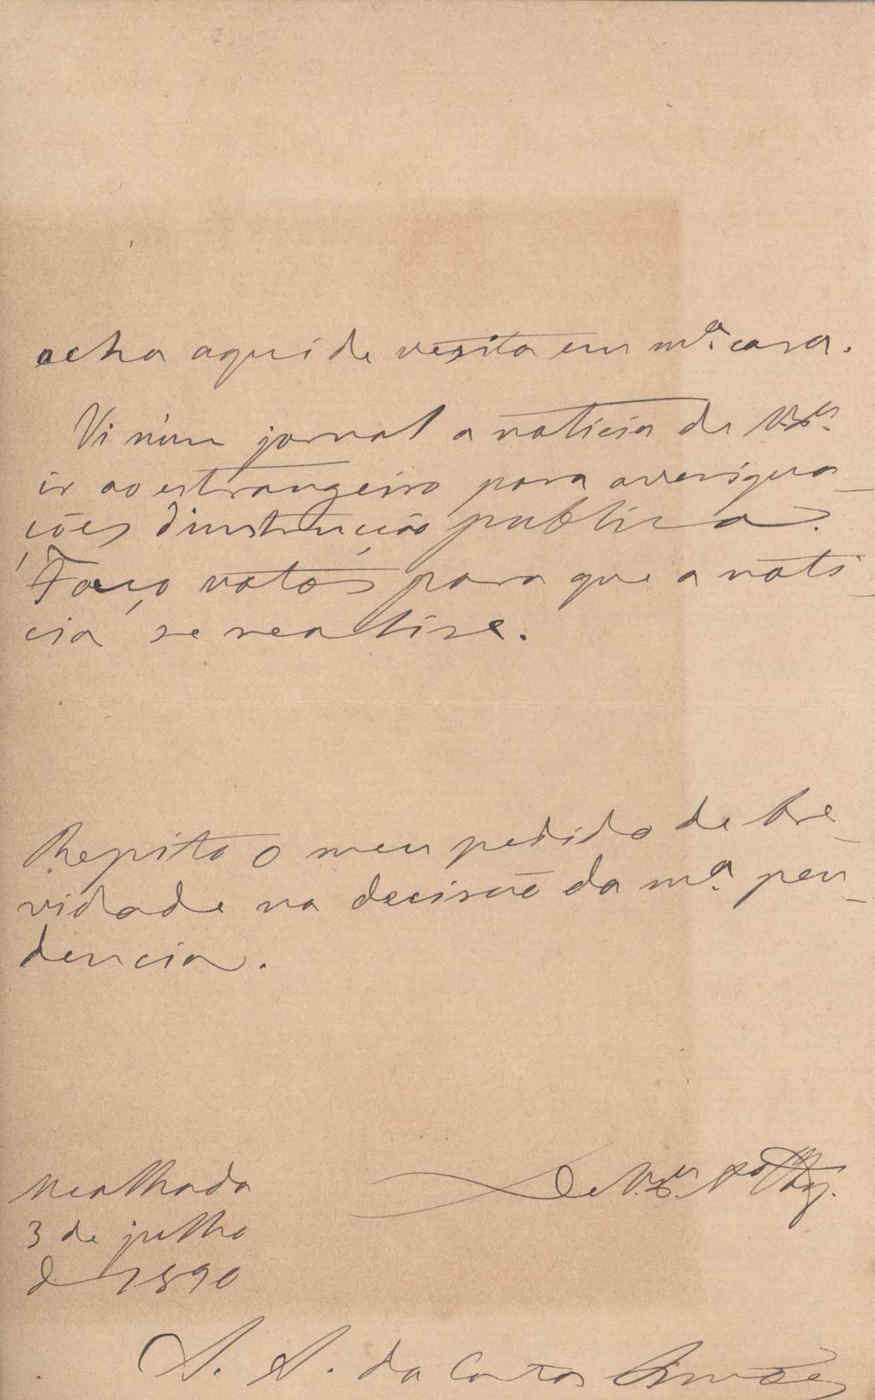 acha aqui de vesita em mª. casa.
Vi n'um jornal a noticia de V. Exª.
ir ao estrangeiro para averigua-
ções d'instrucção publica.
Faço votos para que a noti-
cia se realise.
Repito o meu pedido de bre-
vidade na decisão da mª. pen-
dencia.
Mealhada
De V. Exª.
3 de julho
de 1890
A. A. da Costa Simões